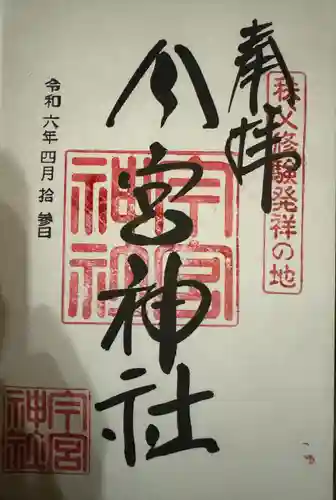 奉拝
秩父修験発祥の地
今宮神社
今宮神社
令和六年四月拾参日
今宮神社